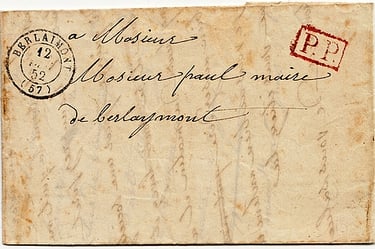 BERLAIMONT
12
52
(57)
P.P.
a Mosieur
Mosieur paul maire
de berlaymont